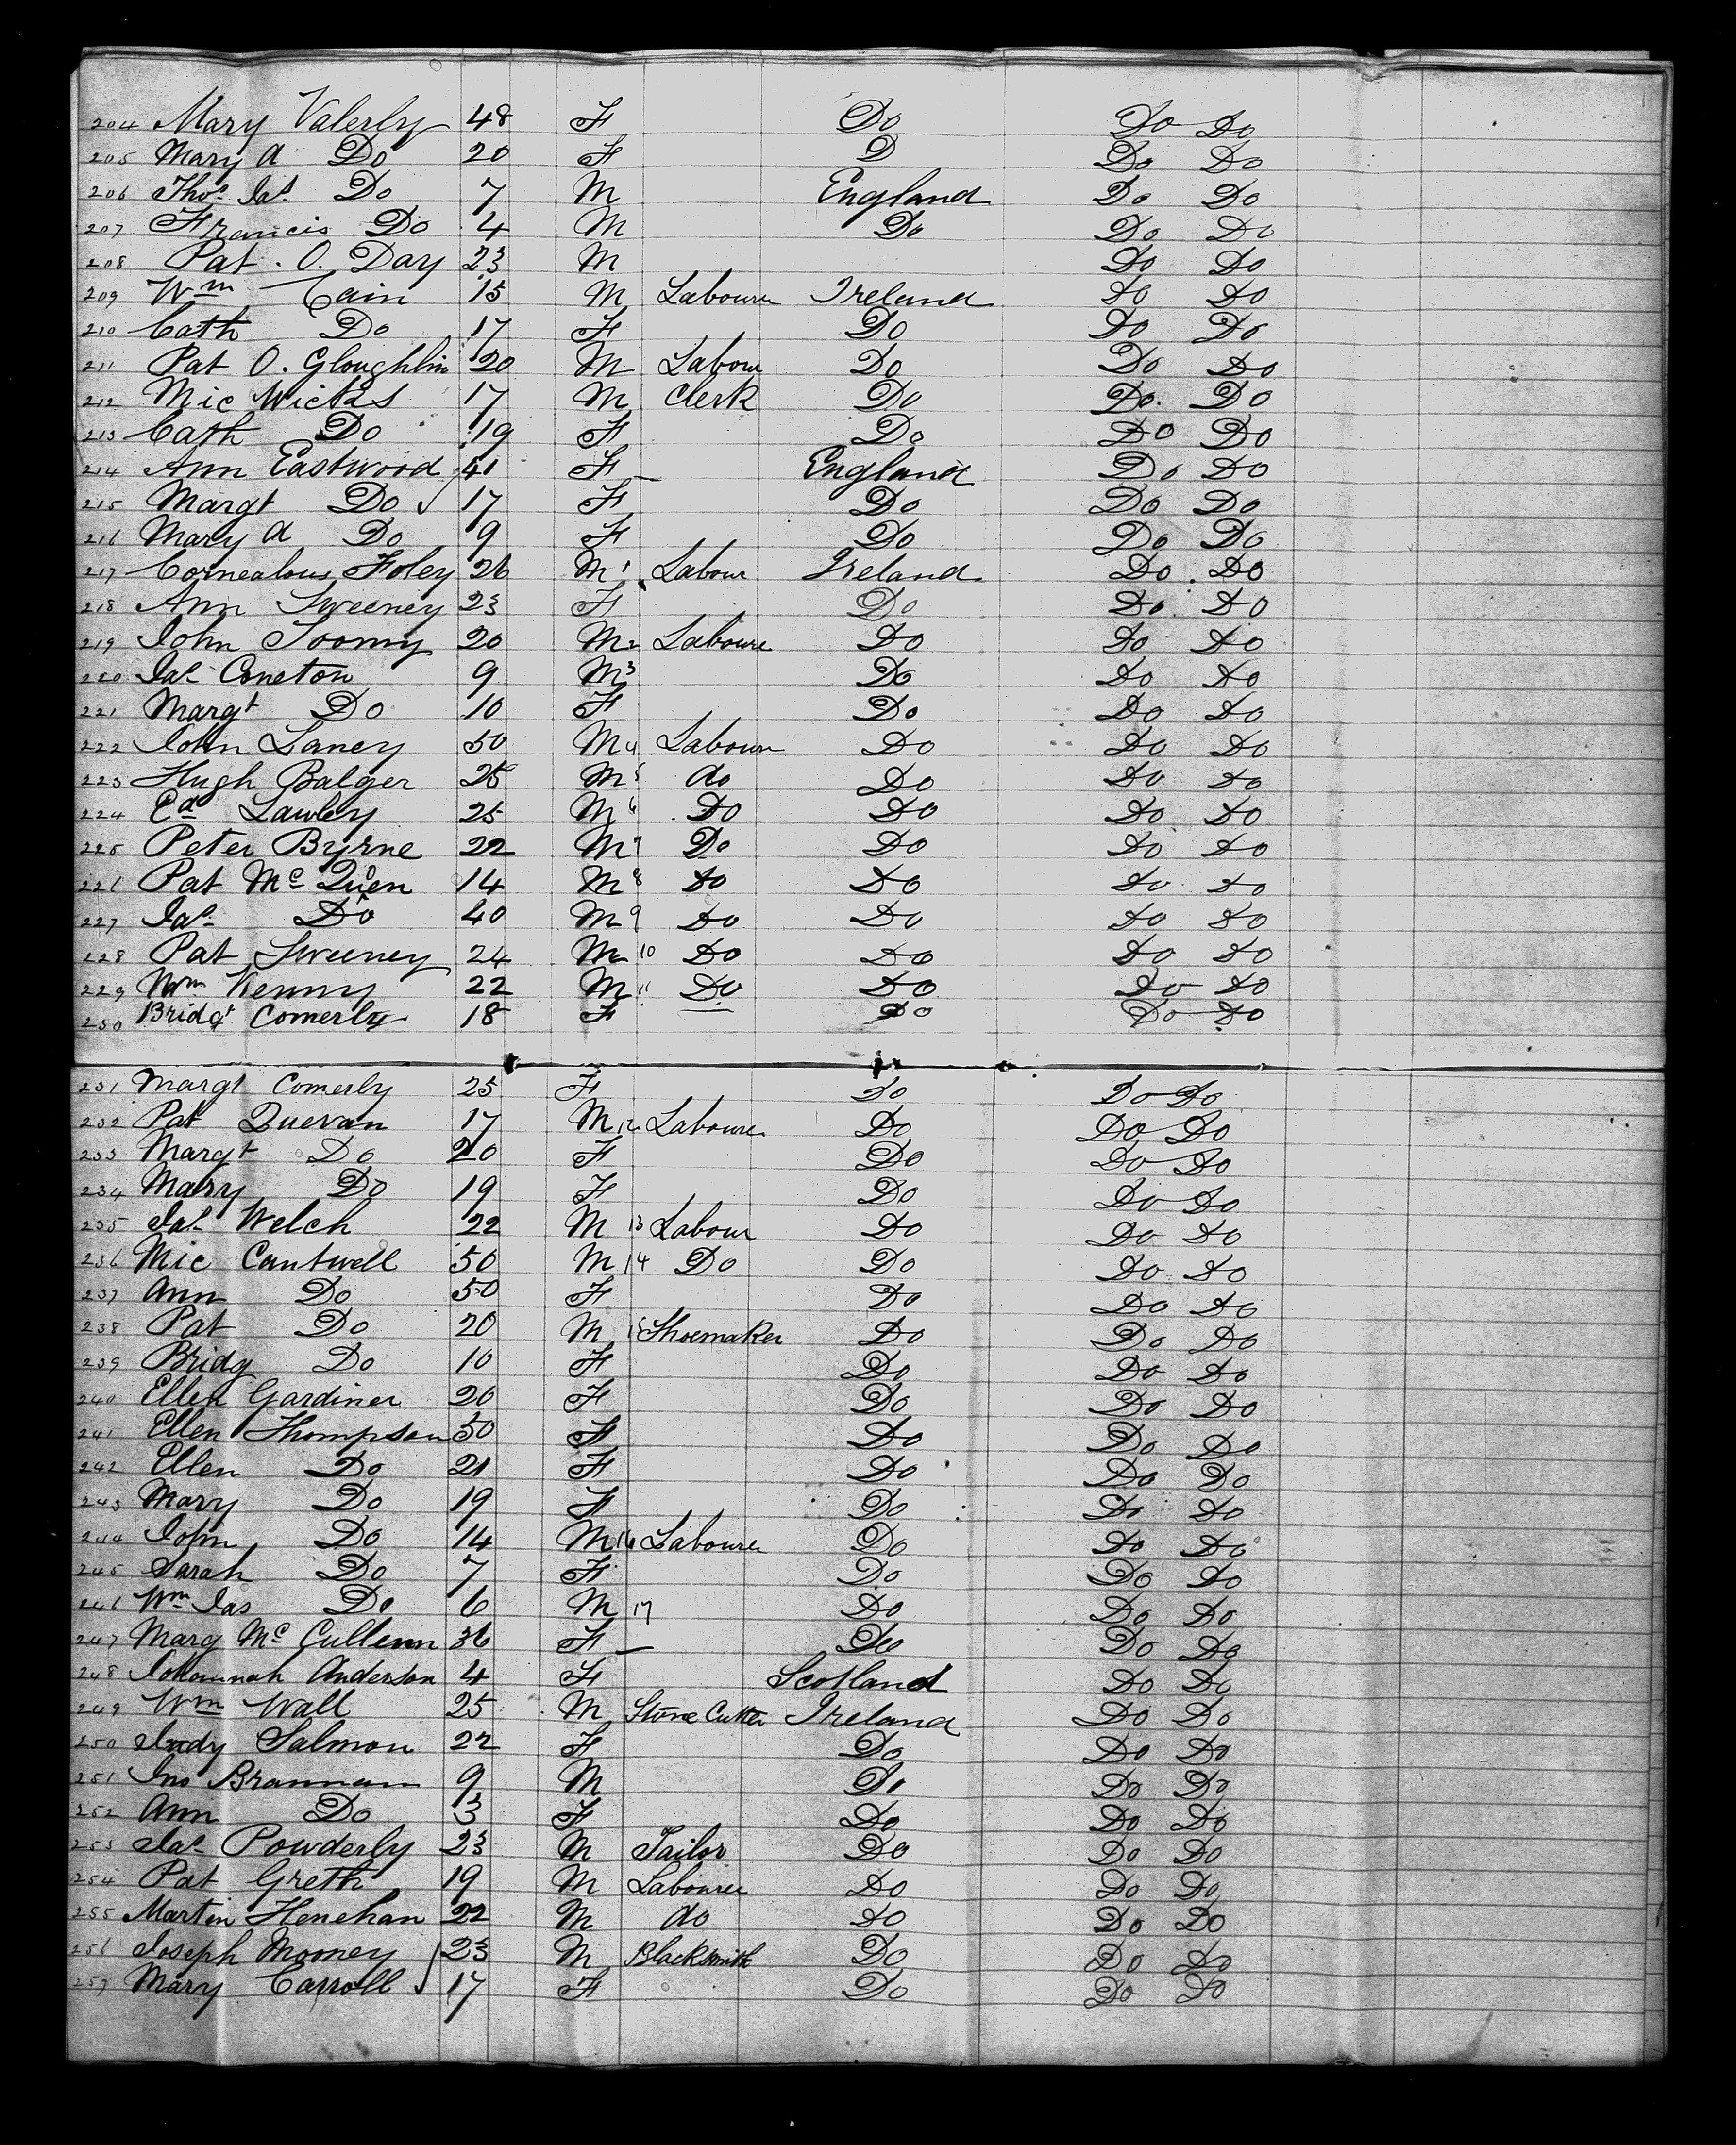 204 Mary Valerly 48 F Do Do Do
205 Mary A Do 20 F D Do Do
206 Thos. Jas. Do 7 M England Do Do
207 Francis Do 4 M Do Do Do
208 Pat. O. Day 23 M Do Do
209 Wm Cain 15 M Labourer Ireland Do Do
210 Cath Do 17 F Do Do Do
211 Pat O. Gloughlin 20 M Labour Do Do Do
212 Mic Wicks 17 M Clerk Do Do Do
213 Cath Do 19 F Do Do Do
214 Ann Eastwood 41 F England Do Do
215 Margt Do 17 F Do Do Do
216 Mary A Do 9 F Do Do Do
217 Cornealous Foley 26 M 1 Labour Ireland Do Do
218 Ann Sweeney 23 F Do Do Do
219 John Toomy 20 M 2 Laboure Do Do Do
220 Jas. Coneton 9 M 3 Do Do Do
221 Margt Do 10 F Do Do Do
222 John Laney 50 M 4 Labour Do Do Do
223 Hugh Balger 25 M 5 do Do Do Do
224 Ed Lawley 25 M 6 Do Do Do Do
225 Peter Byrne 22 M 7 Do Do Do Do
226 Pat Mc Quen 14 M 8 Do Do Do Do
227 Jas. Do 40 M 9 Do Do Do Do
228 Pat Sweeney 24 M 10 Do Do Do Do
229 Wm Kenny 22 M 11 Do Do Do Do
230 Bridgt Comerly 18 F Do Do Do
231 Margt Comerly 25 F Do Do Do
232 Pat Quevan 17 M 12 Laboure Do Do Do
233 Margt Do 20 F Do Do Do
234 Mary Do 19 F Do Do Do
235 Jas. Welch 22 M 13 Labour Do Do Do
236 Mic Cantwell 50 M 14 Do Do Do Do
237 Ann Do 50 F Do Do Do
238 Pat Do 20 M 15 Shoemaker Do Do Do
239 Bridg Do 10 F Do Do Do
240 Ellen Gardiner 20 F Do Do Do
241 Ellen Thompson 50 F Do Do Do
242 Ellen Do 21 F Do Do Do
243 Mary Do 19 F Do Do Do
244 John Do 14 M 16 Laboure Do Do Do
245 Sarah Do 7 F Do Do Do
246 Wm Jas Do 6 M 17 Do Do Do
247 Marg Mc Cullenn 36 F Do Do Do
248 Johannah Anderson 4 F Scotland Do Do
249 Wm Wall 25 M Stone Cutter Ireland Do Do
250 Judy Salmon 22 F Do Do Do
251 Jno Brannam 9 M Do Do Do
252 Ann Do 3 F Do Do Do
253 Jas. Powderly 23 M Tailor Do Do Do
254 Pat Greth 19 M Labourer Do Do Do
255 Martin Henehan 22 M do Do Do Do
256 Joseph Mooney 23 M Blacksmith Do Do Do
257 Mary Carroll 17 F Do Do Do